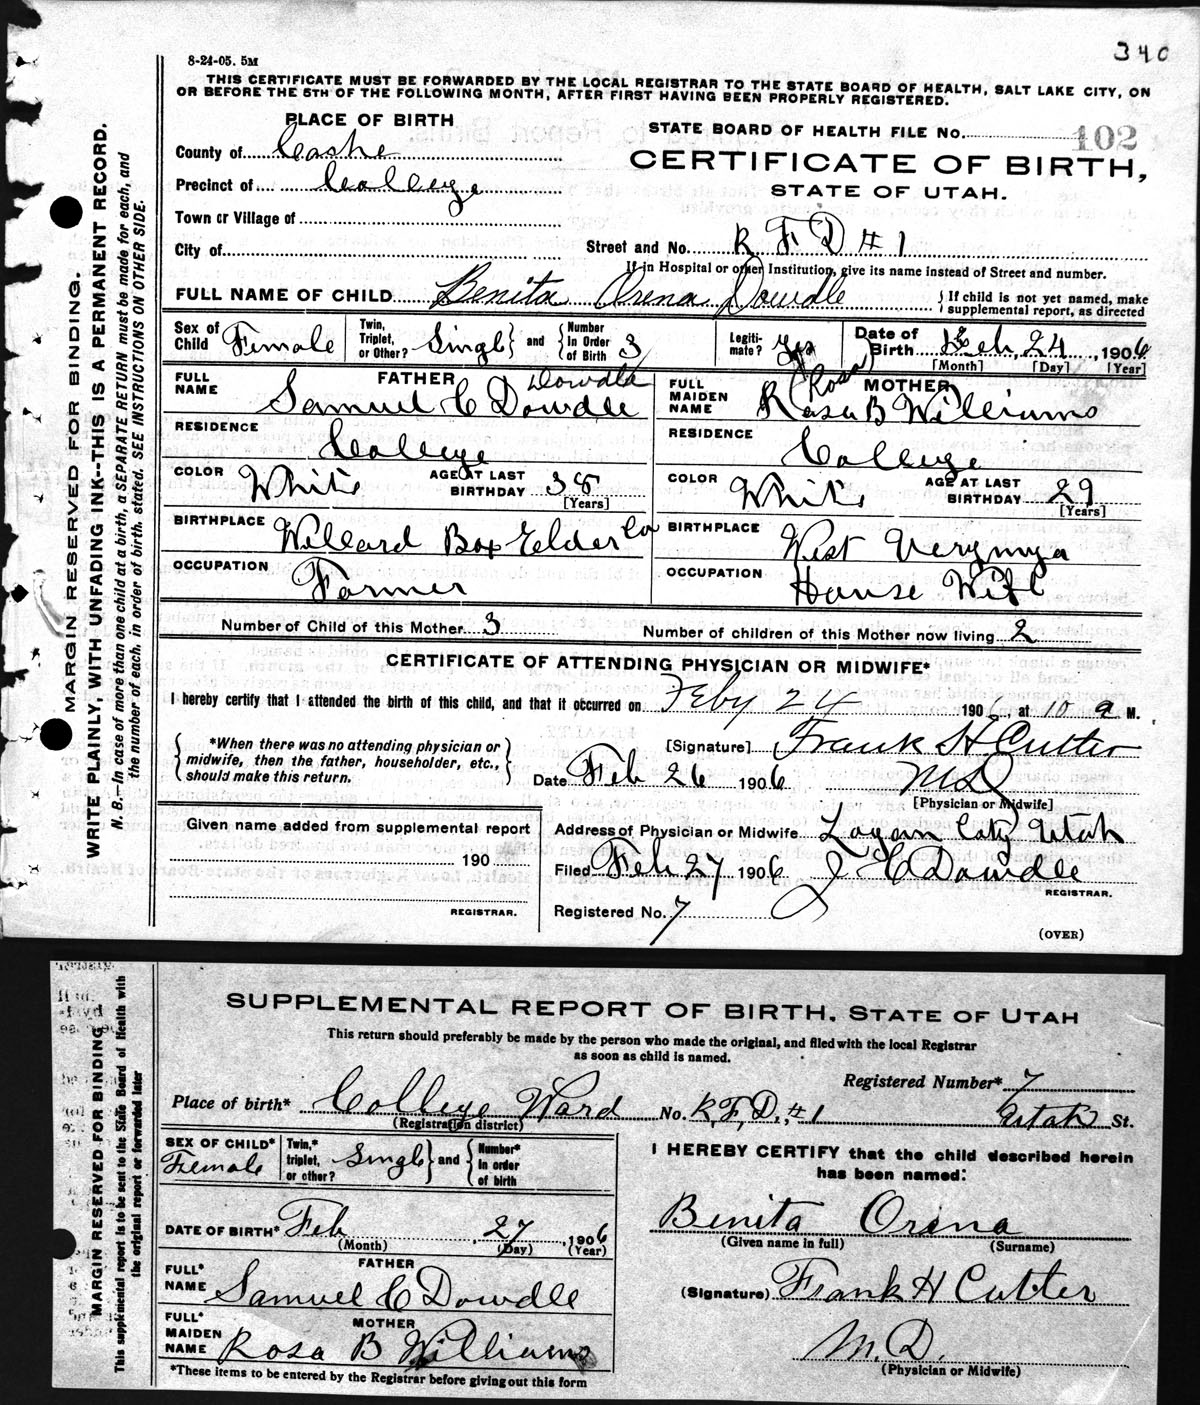 340
8-24-05. 5M
THIS CERTIFICATE MUST BE FORWARDED BY THE LOCAL REGISTRAR TO THE STATE BOARD OF HEALTH, SALT LAKE CITY, ON
OR BEFORE THE 5TH OF THE FOLLOWING MONTH, AFTER FIRST HAVING BEEN PROPERLY REGISTERED.
MARGIN RESERVED FOR BINDING.
WRITE PLAINLY, WITH UNFADING INK--THIS IS A PERMANENT RECORD.
N. B.—In case of more than one child at a birth, a SEPARATE RETURN must be made for each, and
the number of each, in order of birth, stated. SEE INSTRUCTIONS ON OTHER SIDE.
PLACE OF BIRTH
STATE BOARD OF HEALTH FILE No. 102
County of Cashe
CERTIFICATE OF BIRTH,
Precinct of College
STATE OF UTAH.
Town or Village of
City of Street and No. R F D # 1
If in Hospital or other Institution, give its name instead of Street and number.
FULL NAME OF CHILD Benita Orena Dowdle { If child is not yet named, make
supplemental report, as directed
Sex of Child Female Twin, Triplet, or Other? Singl } and { Number In Order of Birth 3 Legiti-mate? Yes Date of Birth Feb, 24, 1906
[Month] [Day] [Year]
FATHER Dowdle MOTHER (Rosa)
FULL NAME Samuel C Dowdle FULL MAIDEN NAME Rosa B Williams
RESIDENCE College RESIDENCE College
COLOR White AGE AT LAST BIRTHDAY 38 [Years] COLOR White AGE AT LAST BIRTHDAY 29 [Years]
BIRTHPLACE Willard Box Elder Co BIRTHPLACE West Vergynya
OCCUPATION Farmer OCCUPATION House Wife
Number of Child of this Mother 3 Number of children of this Mother now living 2
CERTIFICATE OF ATTENDING PHYSICIAN OR MIDWIFE*
I hereby certify that I attended the birth of this child, and that it occurred on Feby 24 190 , at 10 a M.
{ *When there was no attending physician or
midwife, then the father, householder, etc.,
should make this return. }
[Signature] Frank H Cutter
Date Feb 26 1906 M D
[Physician or Midwife]
Given name added from supplemental report
Address of Physician or Midwife Logan City Utah
190
Filed Feb 27 1906 J C Dowdle
REGISTRAR.
REGISTRAR.
Registered No. 7
(OVER)
MARGIN RESERVED FOR BINDING
This supplemental report is to be sent to the State Board of Health with
the original report or forwarded later
SUPPLEMENTAL REPORT OF BIRTH, STATE OF UTAH
This return should preferably be made by the person who made the original, and filed with the local Registrar
as soon as child is named.
Registered Number* 7
Place of birth* College Ward No. R. F. D. #1 Utah St.
(Registration district)
SEX OF CHILD* Female Twin,* triplet, or other? Singl } and { Number* In order of birth
I HEREBY CERTIFY that the child described herein
has been named:
Benita Orena
(Given name in full) (Surname)
DATE OF BIRTH* Feb 27, 1906
(Month) (Day) (Year)
FATHER
FULL* NAME Samuel C Dowdle
(Signature) Frank H Cutter
M. D.
(Physician or Midwife)
MOTHER
FULL* MAIDEN NAME Rosa B Williams
*These items to be entered by the Registrar before giving out this form